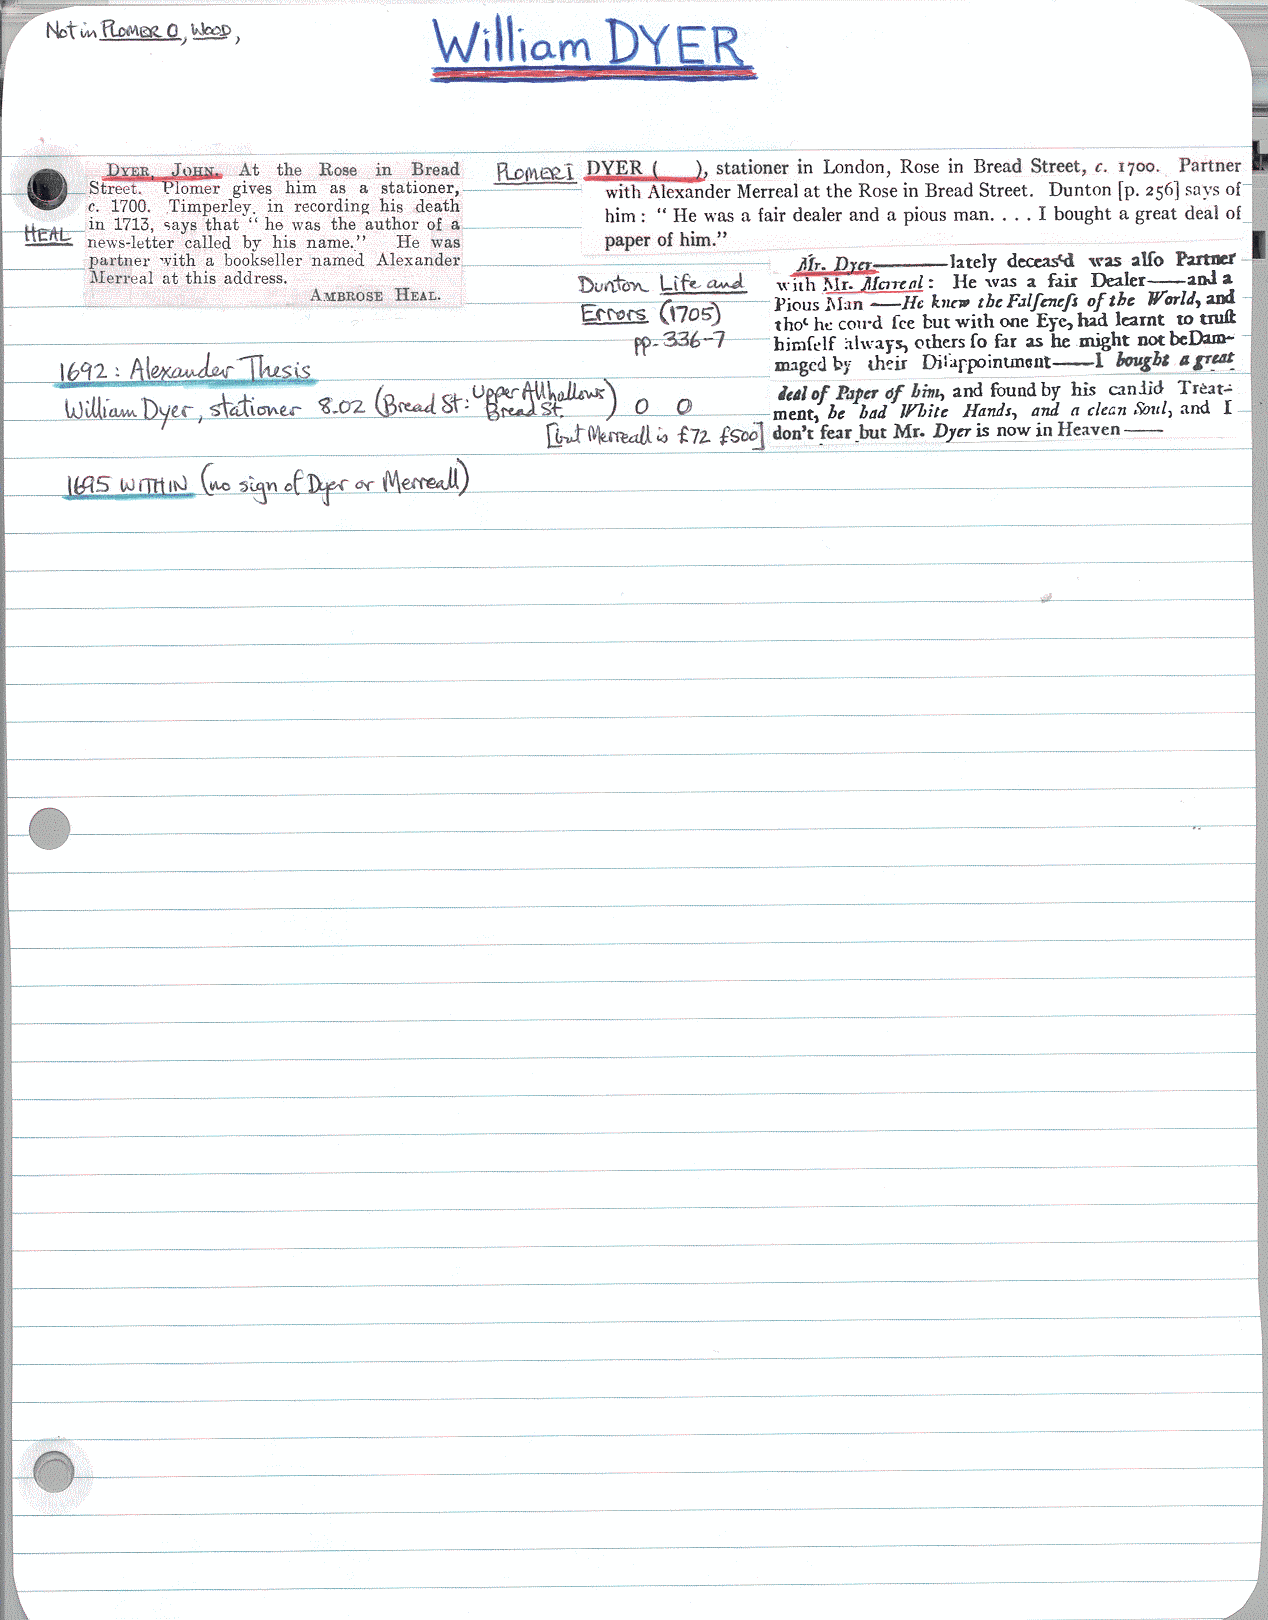 Not in PLOMER O, WOOD,
William DYER
DYER, JOHN. At the Rose in Bread
Street. Plomer gives him as a stationer,
c. 1700. Timperley, in recording his death
in 1713, says that “ he was the author of a
news-letter called by his name.” He was
partner with a bookseller named Alexander
Merreal at this address.
AMBROSE HEAL.
HEAL
PLOMER I
DYER ( ), stationer in London, Rose in Bread Street, c. 1700. Partner
with Alexander Merreal at the Rose in Bread Street. Dunton [p. 256] says of
him : “ He was a fair dealer and a pious man. . . . I bought a great deal of
paper of him.”
Dunton Life and
Errors (1705)
pp. 336-7
Mr. Dyer——lately deceas'd was alſo Partner
with Mr. Merreal : He was a fair Dealer——and a
Pious Man —He knew the Falſeneſs of the World, and
tho' he cou'd ſee but with one Eye, had learnt to truſt
himſelf always, others ſo far as he might not be Dam-
maged by their Diſappointment——I bought a great
deal of Paper of him, and found by his candid Treat-
ment, he had White Hands, and a clean Soul, and I
don't fear but Mr. Dyer is now in Heaven——
1692 : Alexander Thesis
William Dyer, stationer 8.02 (Bread St: Upper Allhallows Bread St.) 0 0
[but Merreall is £72 £500]
1695 WITHIN (no sign of Dyer or Merreall)